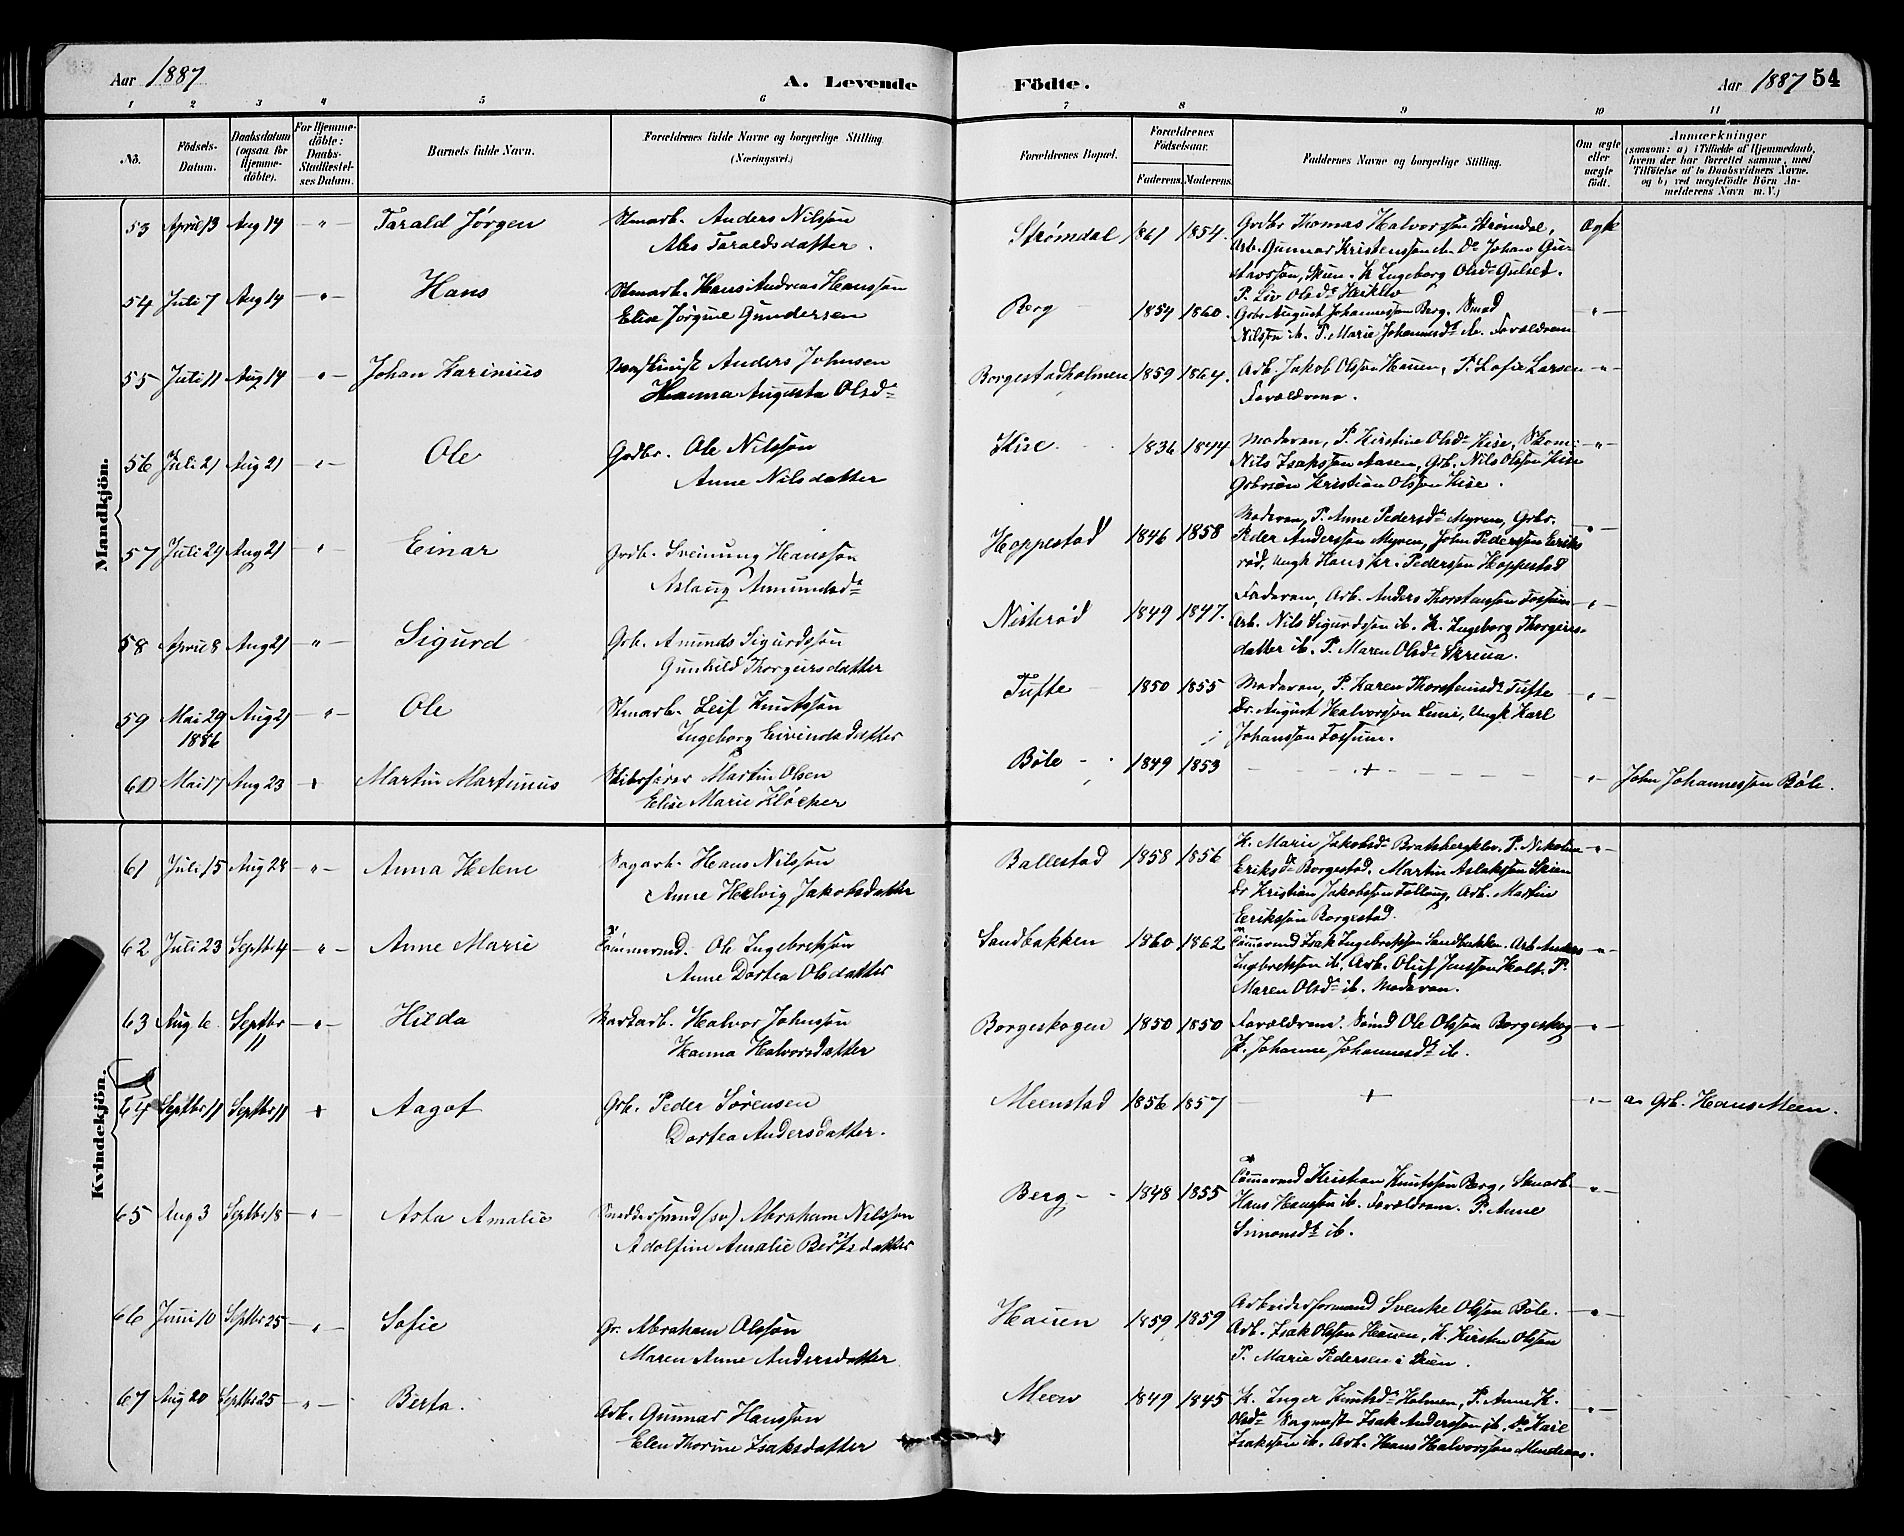 Aar 1887 A. Levende Födte. Aar 1887 54
1 2 3 4 5 6 7 8 9 10 11
No. Födsels-Datum. Daabsdatum (ogsaa for Hjemme-döbte). For Hjemme-döbte: Daabs-Stadfæstel-ses Datum. Barnets fulde Navn. Forældrenes fulde Navne og borgerlige Stilling. (Næringsvei.) Forældrenes Bopæl. Forældrenes Födselsaar. Faderens. Moderens. Faddernes Navne og borgerlige Stilling. Om ægte eller uægte födt. Anmærkninger (saasom: a) i Tilfælde af Hjemmedaab, hvem der har forrettet samme, med Tilföielse af to Daabsvidners Navne, og b) ved uægtefödte Börn An-melderens Navn m. V.)
Mandkjön.
53 April 13 Aug 14 " Tarald Jørgen Anders Nilssøn
Taraldsdatter. Strømdal 1861 1854. Grdbr Thomas Halvorssøn Strømdal, Ægte
Arb. Gunnar Kristenssøn ib. Do Johan Gu-
stavssøn, Skien. K. Ingeborg Olsdr Gulset.
P. Liv Olsdr
54 Juli 7 Aug 14 " Hans Hans Andreas Hanssøn
Elise Jørgine Gundersen Berg 1854 1860. Grbr August Johannessøn Berg. Smed "
Nilssøn ib. P. Marie Johannesdr ib. Forældrene
55 Juli 11 Aug 14 " Johan Karinius Maskinist Anders Johnsen
Hanna Augusta Olsdr Borgestadholmen 1859 1864. Arb. Jakob Olssøn Hauen, P. Sofie Larsen "
Forældrene.
56 Juli 21 Aug 21 " Ole Grdbr. Ole Nilssøn
Anne Nilsdatter Kise 1836 1844 Moderen, P. Kirstine Olsdr Kise, "
Nils Isakssøn Aasen, Grb. Nils Olssøn Kise
Grbrsøn Kristian Olssøn Kise.
57 Juli 24 Aug 21 " Einar Grdb. Sveinung Hanssøn
Aslaug Amundsdr Hoppestad 1846 1858 Moderen, P. Anne Pedersdr Myren, Grbr. "
Peder Anderssøn Myren, John Pederssøn Eriks
rød, Ungk Hans Kr. Pederssøn Hoppestad
58 April 8 Aug 21 " Sigurd Grb. Amund Sigurdssøn
Gunhild Thorgeirsdatter Nisterød 1849 1847. Faderen, Arb. Anders Thorstenssøn Fossum "
Arb. Nils Sigurdssøn ib. K. Ingeborg Thorgeirs-
datter ib. P. Maren Olsdr Skreua.
59 Mai 29 1886 Aug 21 " Ole Leif Knutssøn
Ingeborg Eivindsdatter Tufte 1850 1855 Moderen, P. Karen Thorsteinsdr Tufte "
August Halvorssøn Ungk Karl
Johanssøn Fossum.
60 Mai 17 Aug 23 + Martin Martinius Skibsfører Martin Olsen
Elise Marie Kløcker Bøle 1849 1853 + " John Johannessøn Bøle.
Kvindekjön.
61 Juli 15 Aug 28 " Anna Helene Sagarb. Hans Nilssøn
Anne Helvig Jakobsdatter Ballestad 1858 1856 K. Marie Jakobsdr Bratsbergklev. P. Nikoline "
Eriksdr Borgestad. Martin Aslakssøn Skien
Kristian Jakobssøn Follaug, Arb. Martin
Erikssøn Borgestad.
62 Juli 23 Septbr 4 " Anne Marie Tømmermd. Ole Ingebretssøn
Anne Dortea Olsdatter Sandbakken 1860 1862 Tømmermd Isak Ingebretssøn Sandbakken. Arb Anders "
Ingebretssøn ib, Arb. Oluf Jenssøn Holt. P.
Maren Olsdr ib. Moderen.
63 Aug 6 Septbr 11 " Hilda Halvor Johnssøn
Hanna Halvorsdatter Borgeskogen 1850 1850 Forældrene. Smed Ole Olssøn Borgeskog "
P. Johanne Johannesdr ib.
64 Septbr 11 Septbr 11 + Aagot Grb. Peder Sørensen
Dortea Andersdatter. Meenstad 1856 1857 + " a. Grb. Hans Meen.
65 Aug 3 Septbr 18 " Asta Amalie Snedkersvend (sv) Abraham Nilssøn
Adolfine Amalie Bertsdatter Berg 1848 1855 Tømmermd Kristian Knutssøn Berg, "
Hans Hanssøn ib. Forældrene. P. Anne
Simonsdr ib.
66 Juni 10 Septbr 25 " Sofie Gr. Abraham Olssøn
Maren Anne Andersdatter Hauen 1859 1859 Arbeidsformand Svenke Olssøn Bøle. "
Arb. Isak Olssøn Hauen, K. Kirsten Olssøn
P. Marie Pedersen i Skien.
67 Aug 20 Septbr 25 " Berta. Arb. Gunnar Hanssøn
Elen Thorine Isaksdatter Meen 1849 1845 K. Inger Knutsdr Holmen, P. Anne K. "
Olsdr Isak Anderssøn ib. Do Karl
Isakssøn ib. Arb. Hans Halvorssøn